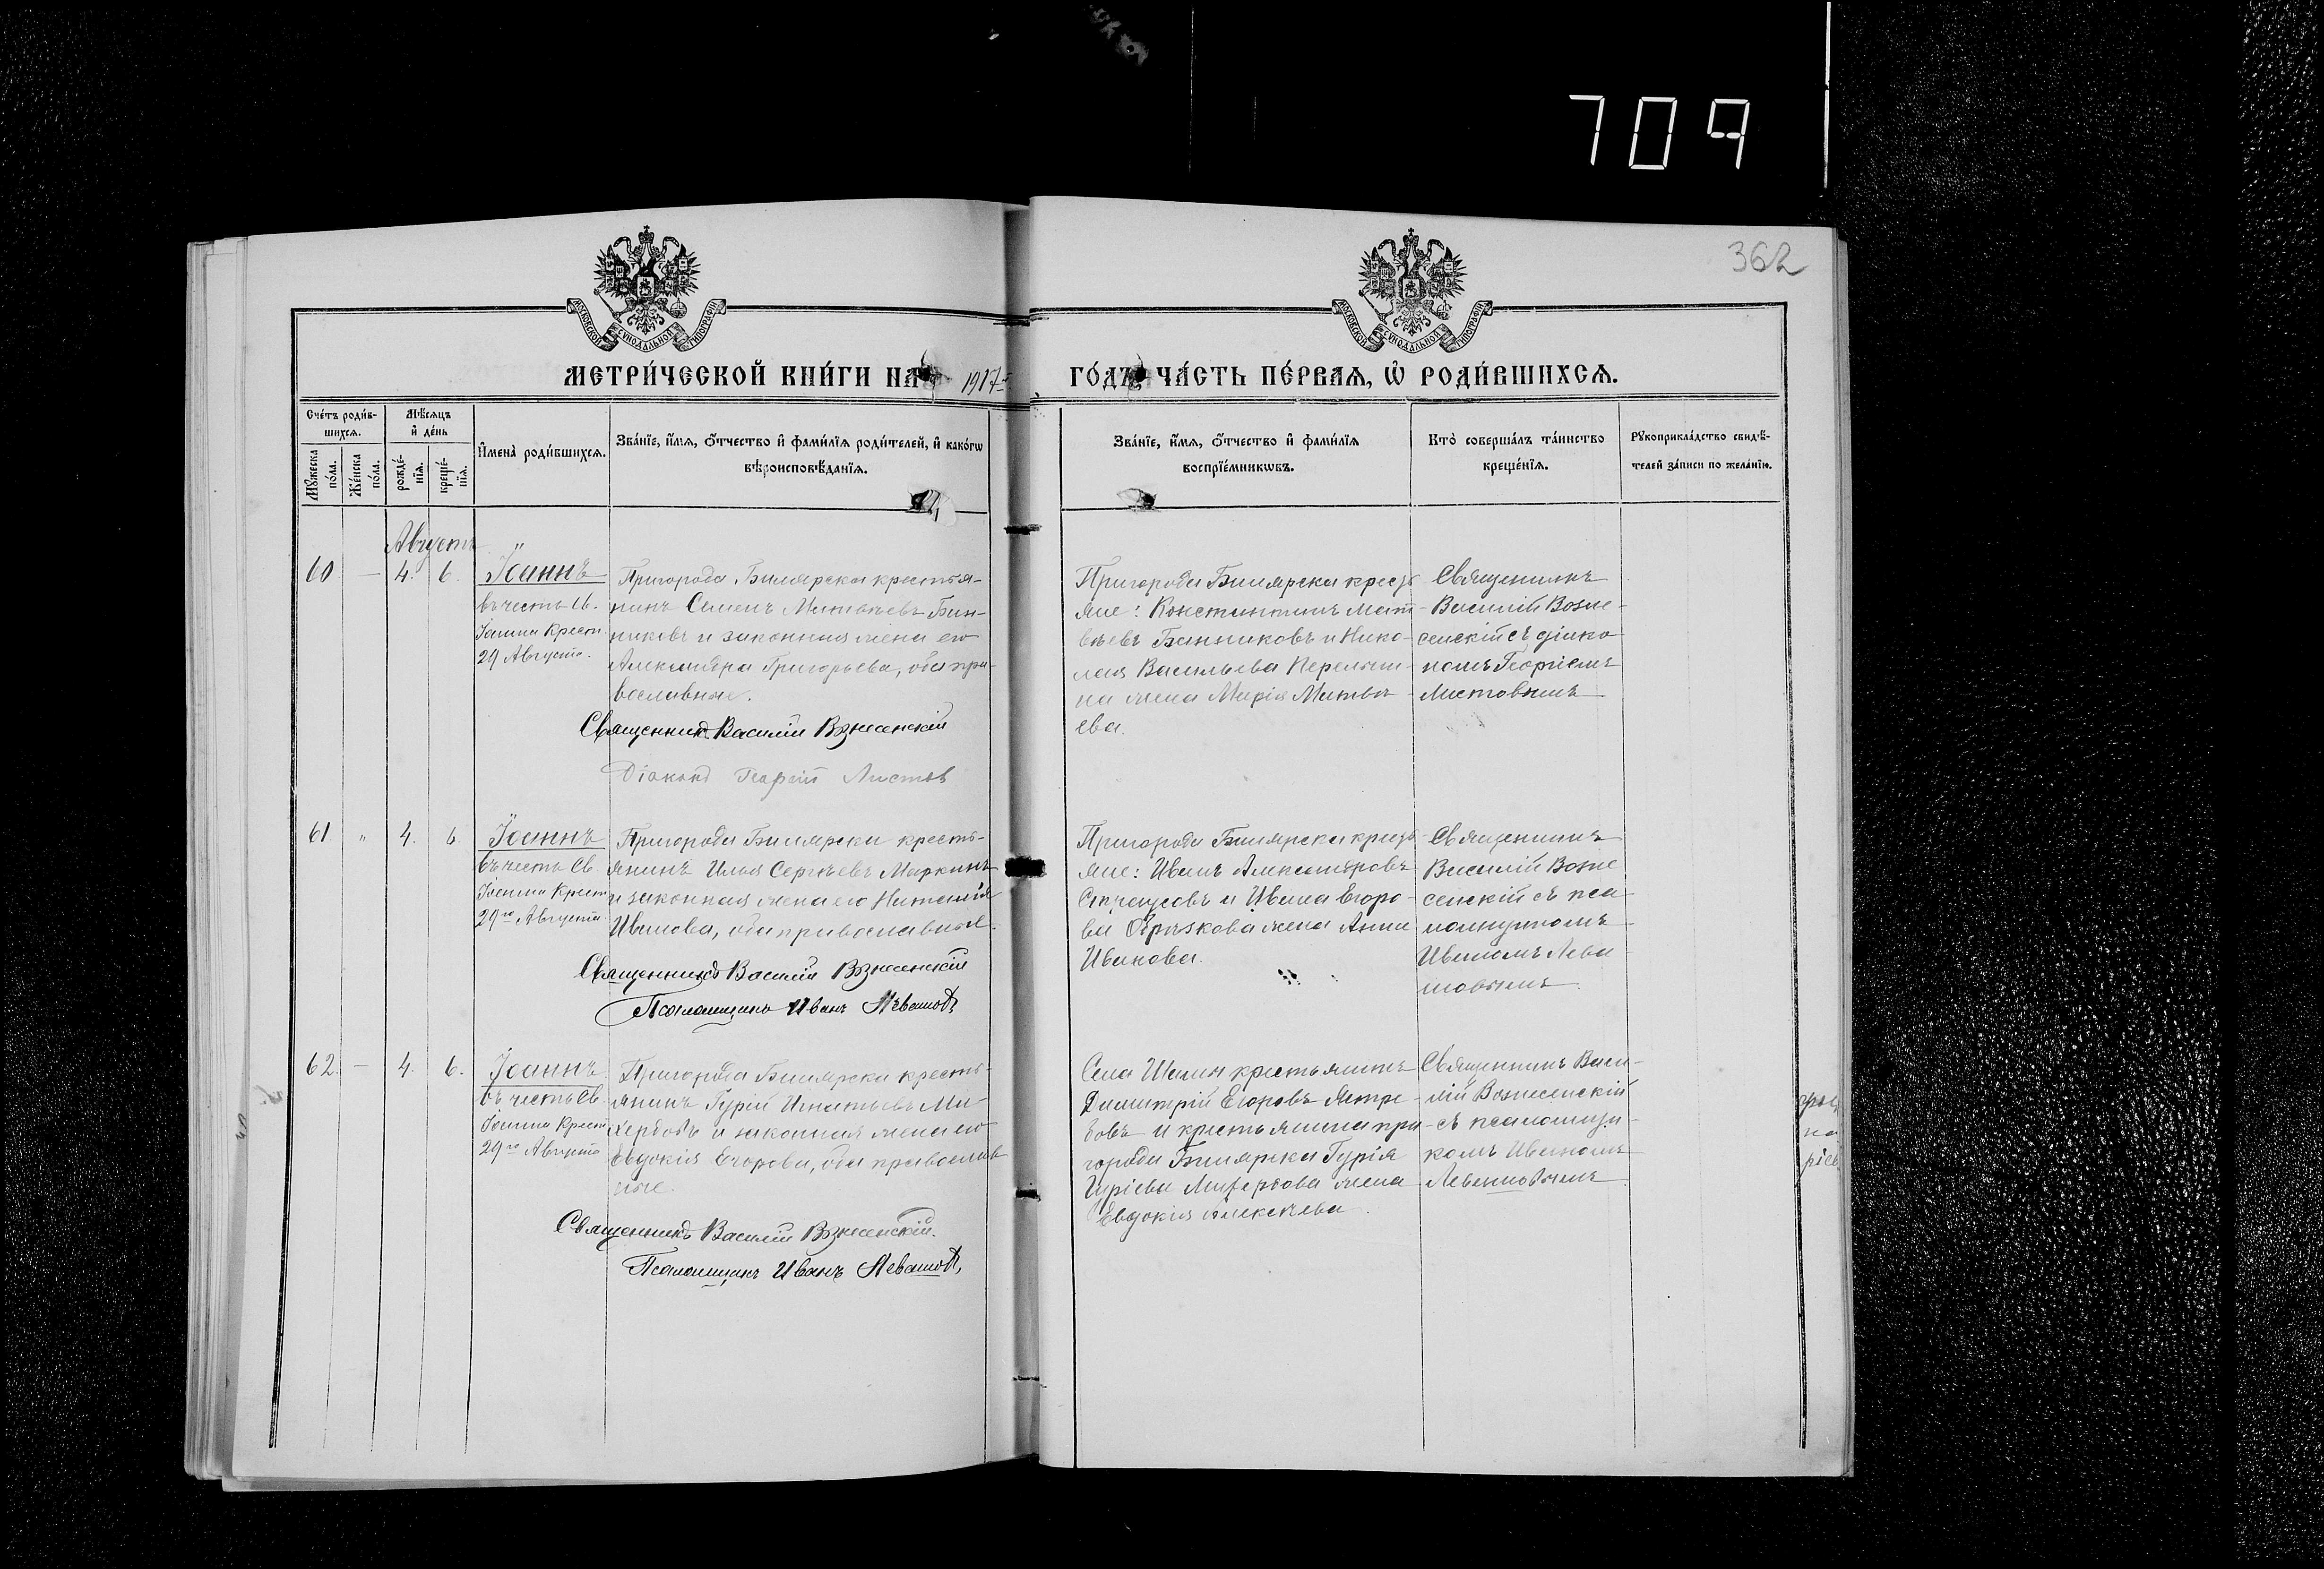 709
362
МОСКОВСКОЙ СУНОДАЛЬНОЙ ТИПОГРАФІИ
МОСКОВСКОЙ СУНОДАЛЬНОЙ ТИПОГРАФІИ
МЕТРИ́ЧЕСКОЙ КНИ́ГИ НА 1917 ГО́ДЪ ЧА́СТЬ ПЕ́РВАѦ, Ѡ РОДИ́ВШИХСѦ.
Сче́тъ роди́в-
шихсѧ.
Мꙋ́жеска по́ла.
Же́нска по́ла.
Мѣ́сѧцъ
и҆ де́нь
рожде́-
нїѧ.
креще́-
нїѧ.
И҆мена̀ роди́вшихсѧ.
Зва́нїе, и҆́мѧ, ѻ҆́тчество и҆ фами́лїѧ роди́телей, и҆ како́гѡ
вѣроисповѣ́данїѧ.
Зва́нїе, и҆́мѧ, ѻ҆́тчество и҆ фами́лїѧ
воспрїе́мникѡвъ.
Кто̀ соверша́лъ та́инство
креще́нїѧ.
Рꙋкоприкла́дство свидѣ́-
телей за́писи по жела́нїю.
Августъ
60 — 4. 6.
Іоаннъ
въ честь Св.
Іоанна Крест.
29 Августа.
Пригорода Билярска крестья-
нинъ Семенъ Матвѣевъ Бан-
никовъ и законная жена его
Александра Григорьева, оба пра-
вославные.
Священникъ Василій Вознесенскій
Діаконъ Георгій Листов
Пригорода Билярска крестья
яне: Константинъ Мат-
вѣевъ Банниковъ и Нико-
лая Васильева
на жена Марія Матвѣ-
ева.
Священникъ
Василій Возне-
сенскій съ діако-
номъ Георгіемъ
Листовымъ
61 " 4. 6
Іоаннъ
въ честь Св
Іоанна Крест
29го Августа.
Пригорода Билярска кресть-
янинъ Илья Сергѣевъ Маркинъ
и законная жена его Наталія
Иванова, оба православные.
Священникъ Василій Вознесенскій
Псаломщикъ Иванъ Левашовъ
Пригорода Билярска кресть
яне: Иванъ Александровъ
и Ивана Егоро-
ва жена Анна
Иванова.
Священникъ
Василій Возне
сенскій съ пса
ломщикомъ
Иваномъ Лева
шовымъ
62. — 4. 6.
Іоаннъ
въ честь Св.
Іоанна Крест
29го Августа
Пригорода Билярска кресть-
янинъ Гурій Игнатьевъ Ма-
и законная жена его
Евдокія Егорова, оба православ
ные.
Священникъ Василій Вознесенскій.
Псаломщикъ Иванъ Левашовъ,
Села крестьянинъ
Димитрій Егоровъ Ястре-
бовъ и крестьянина при-
города Билярска Гурія
жена
Евдокія Алексѣева.
Священникъ Васи-
лій Вознесенскій
съ псаломщи-
комъ Иваномъ
Левашовымъ